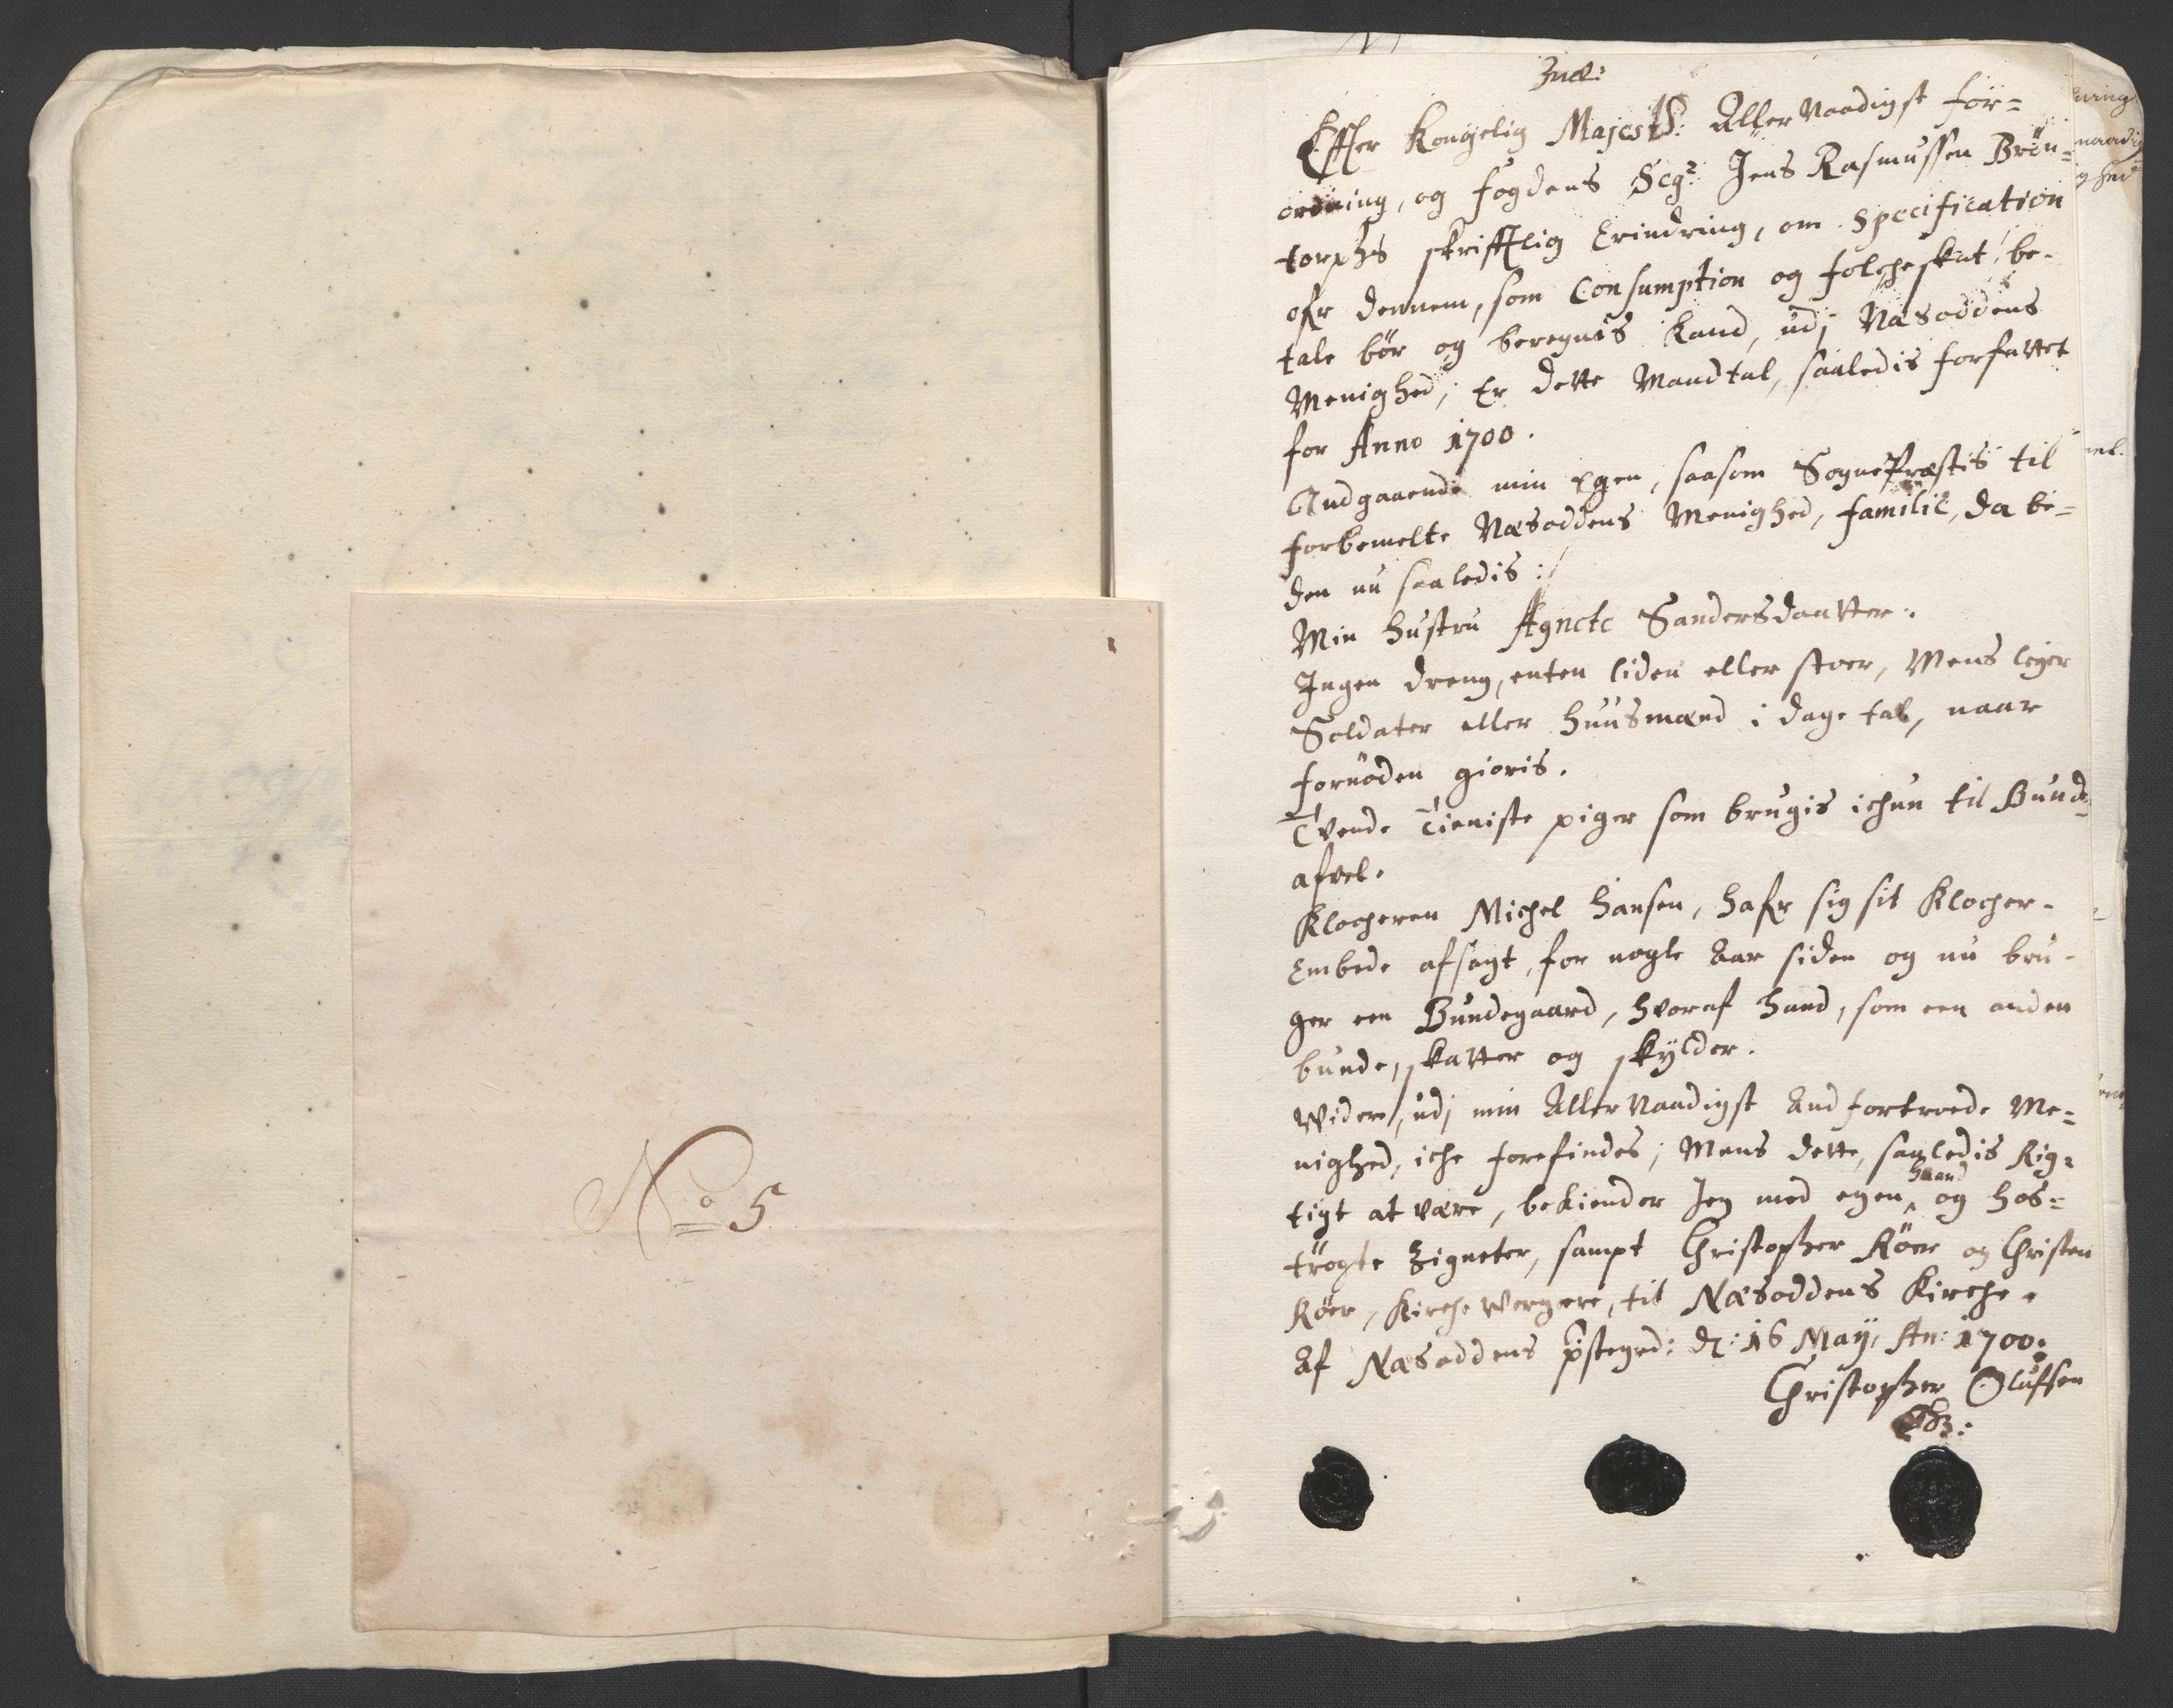 No 5
Efter Kongelig Majestᵗˢ: Aller Naadigst for=
ordning, og fogdens Seg.r Jens Rasmussen Brön=
torphs skrifftlig Erindring, om Specification
ofr dennem, som Consumption og folcheskat, be-
tale bör og beregnis kand, udj Næsoddens
Menighed; Er dette Mandtal, saaledis forfattet
for Anno 1700.
Andgaaende min egen, saasom SognePræstis til
forbemelte Næsoddens Menighed, familie, da be=
den nu saaledis:/
Min hustru Agnete Sandersdaatter.
Ingen dreng, enten liden eller stoer, Mens leger
Soldater eller huusmænd i dage tal, naar
fornöden giøris.
Tvende Tieniste piger som brugis ichun til Bunde=
afvel.
Klocheren Michel Hansen, hafr sig sit Klocher-
Embede afsagt, for nogle Aar siden og nu bru-
ger een Bundegaard, hvoraf hand, som een anden
bunde, skatter og skylder.
Widere, udj min Aller Naadigst Andfortroede Me=
nighed, iche forefindes; Mens dette, saaledis Rig=
tigt at være, bekiender Jeg med egen haand og hos=
trögte Zigneter, sampt Christopher Röer og Christen
Röer, Kirche Wergere, til Næsoddens Kirche.
Af Næsoddens pstegrd: d: 16 Maij, An: 1700:
Christopher Olufsen